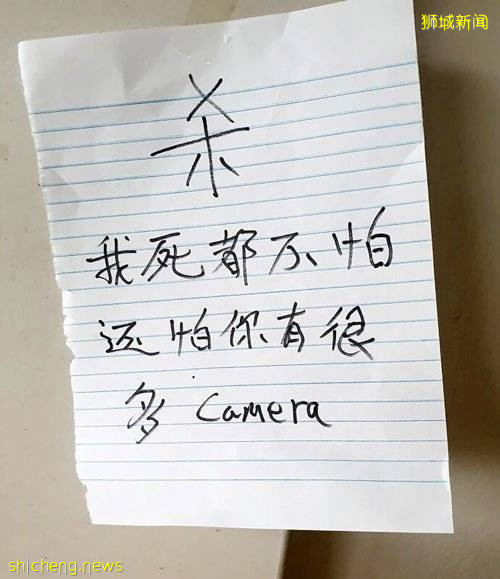 狮城新闻
杀
我死都不怕
还怕你有很
多 Camera
shicheng.news